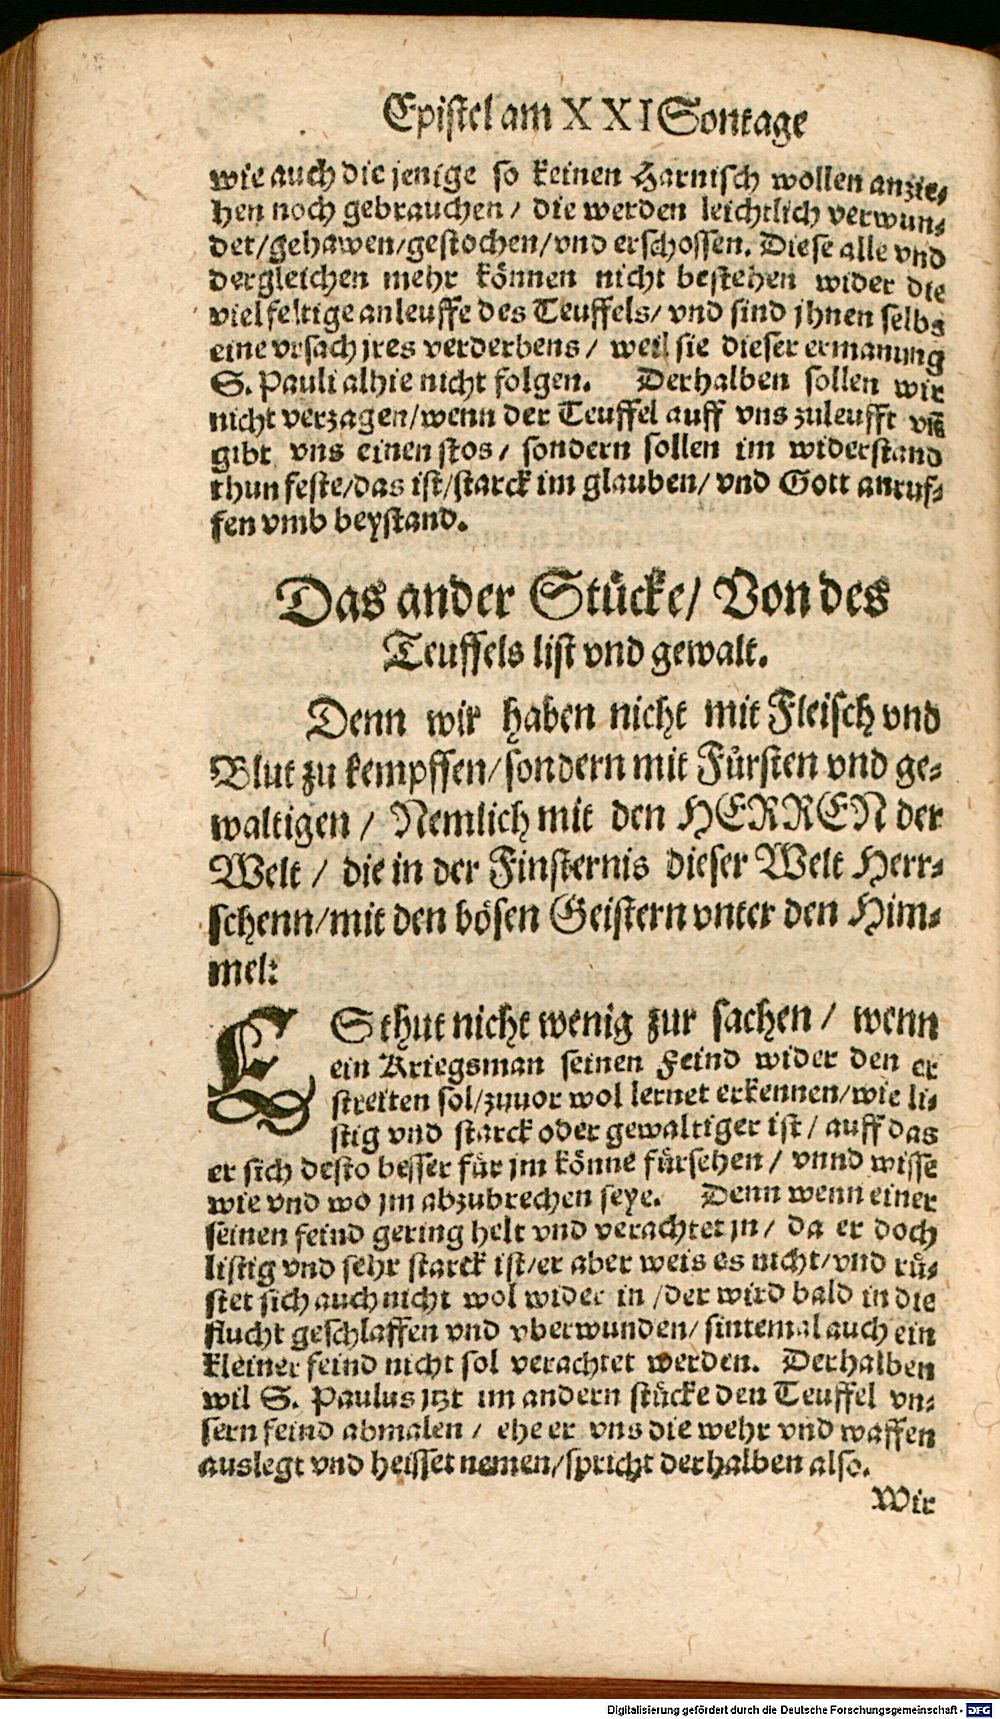 Epistel am XXI Sontage
wie auch die jenige so keinen Harnisch wollen anzie-
hen noch gebrauchen / die werden leichtlich verwun-
det/gehawen/gestochen/vnd erschossen. Diese alle vnd
dergleichen mehr können nicht bestehen wider die
vielfeltige anleuffe des Teuffels/ vnd sind jhnen selbs
eine vrsach jres verderbens / weil sie dieser ermanung
S. Pauli alhie nicht folgen. Derhalben sollen wir
nicht verzagen/wenn der Teuffel auff vns zuleufft vñ
gibt vns einen stos / sondern sollen im widerstand
thun feste/das ist/starck im glauben/ vnd Gott anruf-
fen vmb beystand.
Das ander Stücke/ Von des
Teuffels list vnd gewalt.
Denn wir haben nicht mit Fleisch vnd
Blut zu kempffen/sondern mit Fürsten vnd ge-
waltigen / Nemlich mit den HERREN der
Welt / die in der Finsternis dieser Welt Herr-
schenn/mit den bösen Geistern vnter den Him-
mel:
ES thut nicht wenig zur sachen / wenn
ein Kriegsman seinen Feind wider den er
streiten sol/zuuor wol lernet erkennen/wie li-
stig vnd starck oder gewaltiger ist / auff das
er sich desto besser für jm könne fürsehen / vnnd wisse
wie vnd wo jm abzubrechen seye. Denn wenn einer
seinen feind gering helt vnd verachtet jn / da er doch
listig vnd sehr starck ist/er aber weis es nicht/vnd rü-
stet sich auch nicht wol wider in /der wird bald in die
flucht geschlaffen vnd vberwunden/ sintemal auch ein
kleiner feind nicht sol verachtet werden. Derhalben
wil S. Paulus jtzt im andern stücke den Teuffel vn-
sern feind abmalen / ehe er vns die wehr vnd waffen
auslegt vnd heisset nemen/spricht derhalben also.
Wir
Digitalisierung gefördert durch die Deutsche Forschungsgemeinschaft - DFG